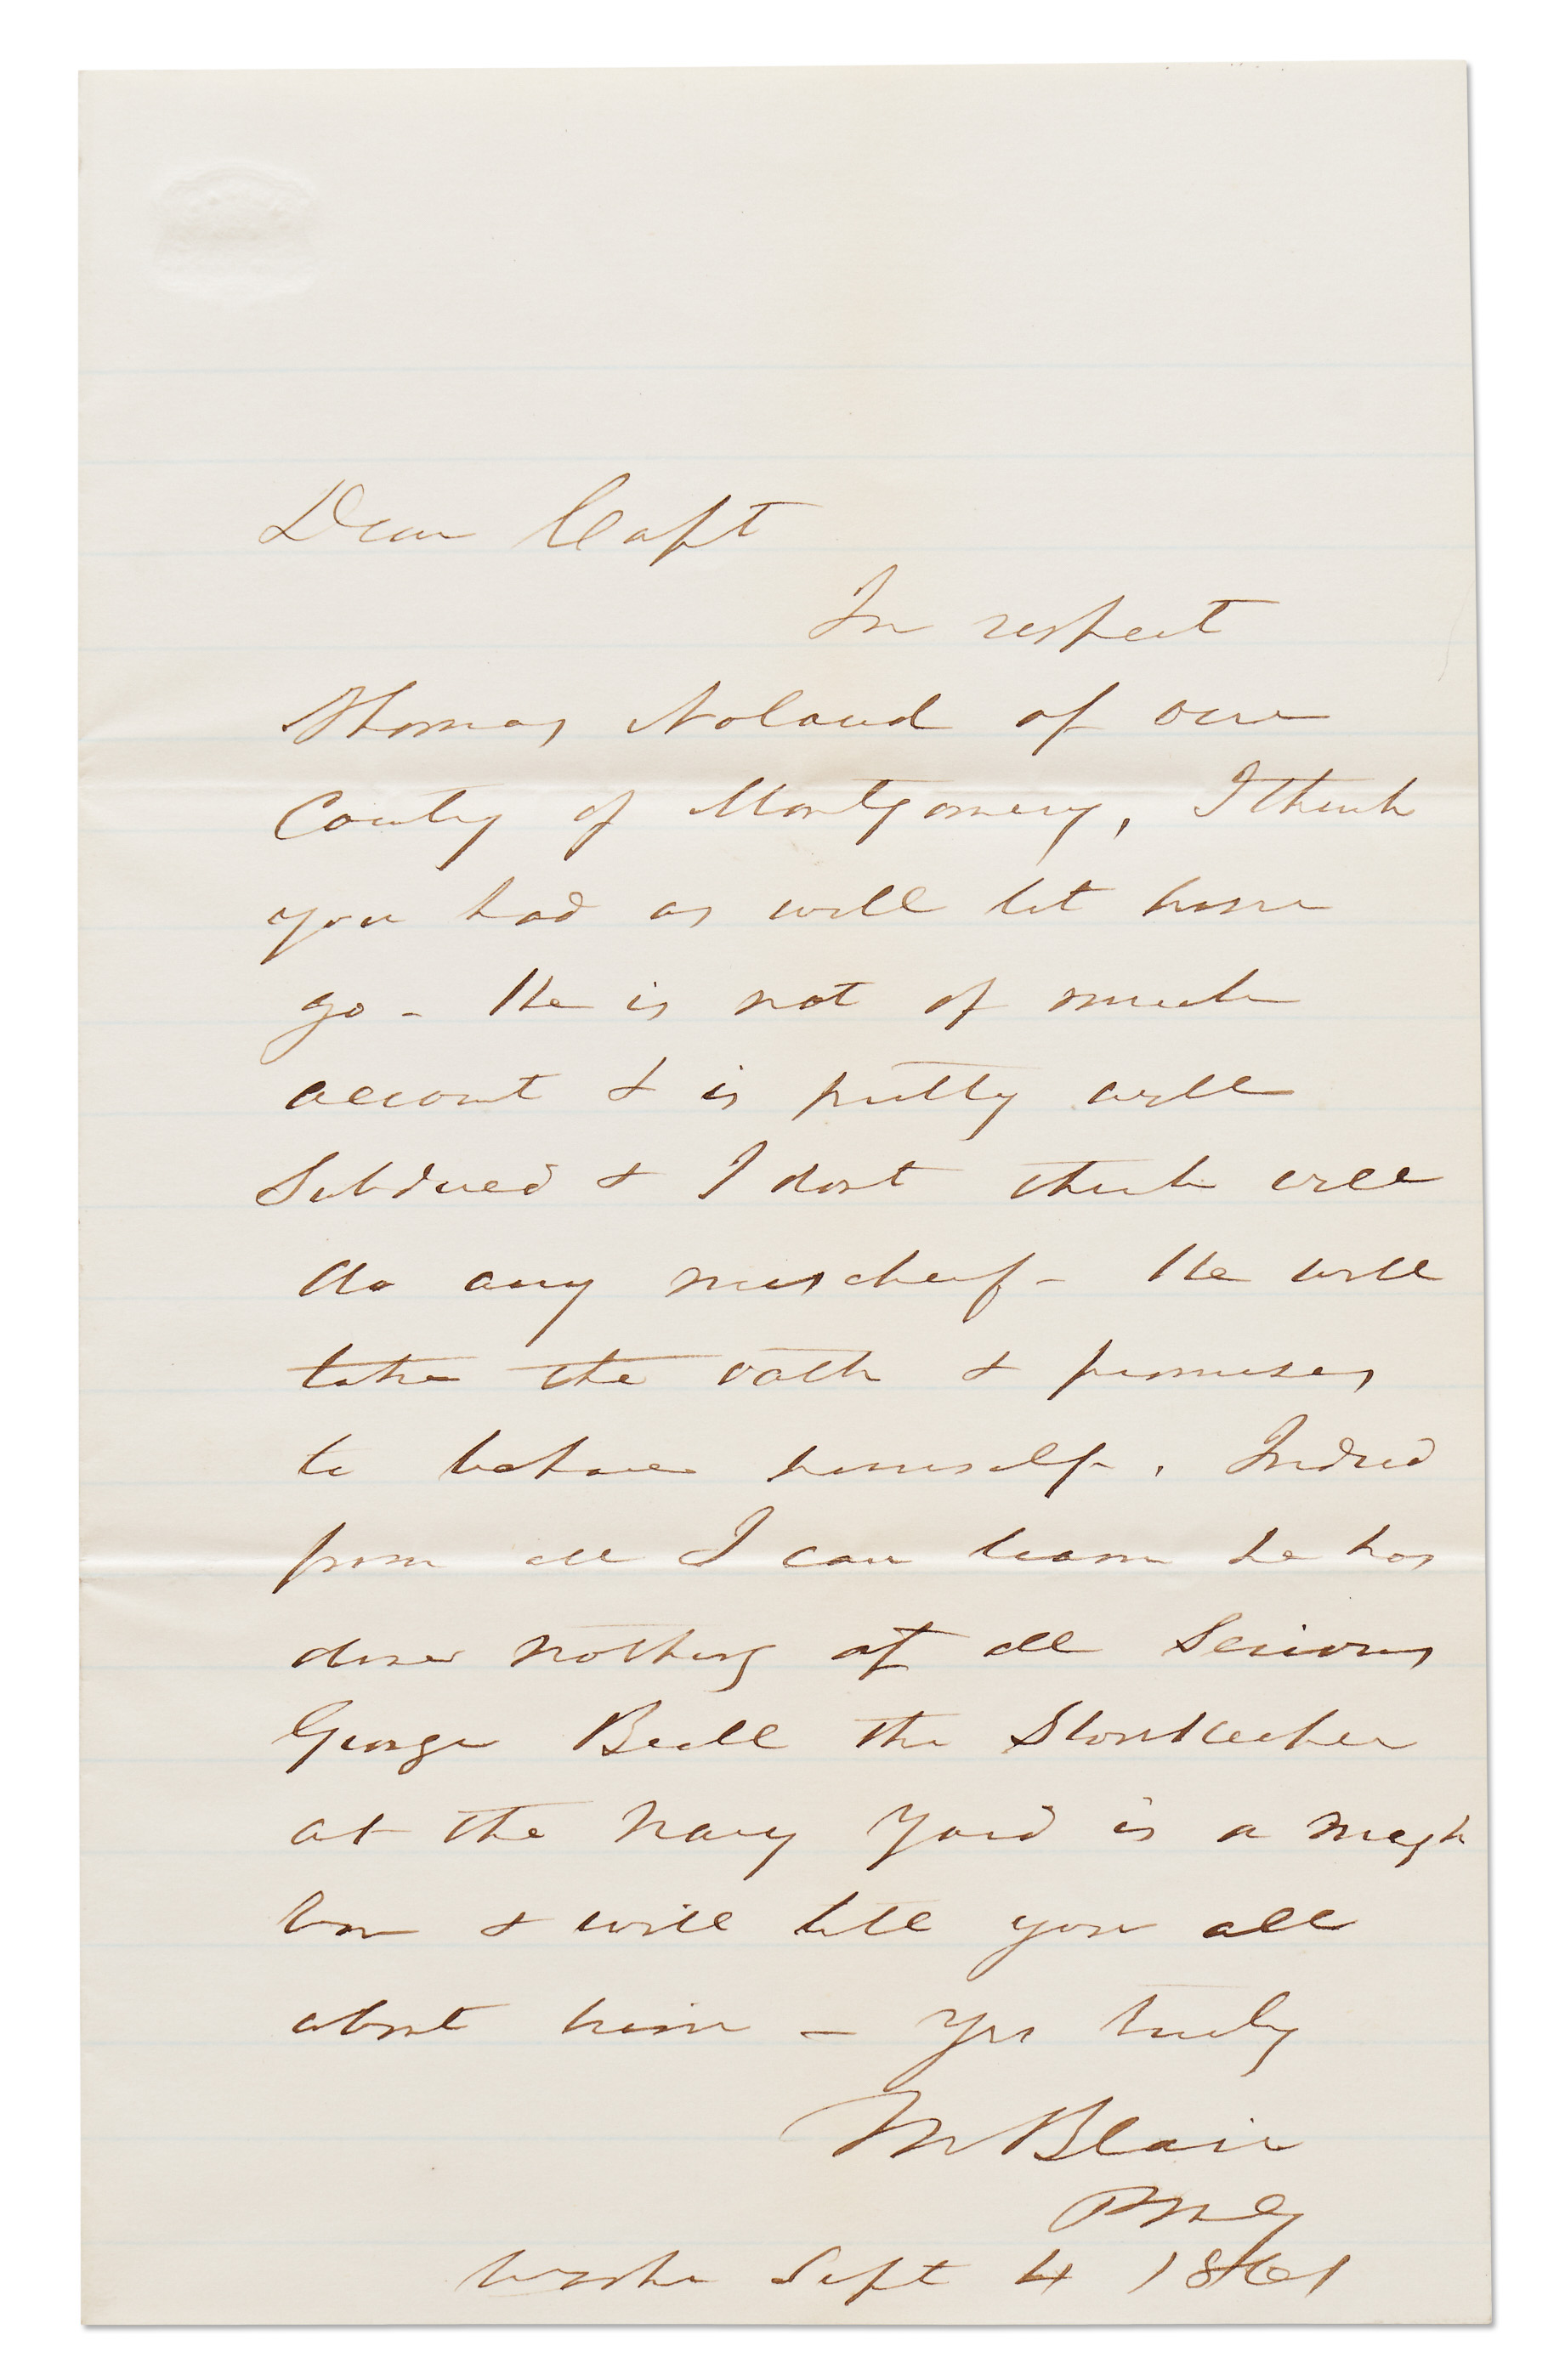 Dear Capt
In respect
Thomas Noland of our
County of Montgomery, I think
you had as well let him
go - He is not of much
account & is pretty well
Subdued & I dont think will
do any mischief - He will
take the oath & promises
to behave himself. Indeed
from all I can learn he has
done nothing at all Serious
George Beall the Storekeeper
at the Navy Yard is a neigh
bor & will tell you all
about him - Yrs truly
M Blair
PMG
Washn Sept 4 1861